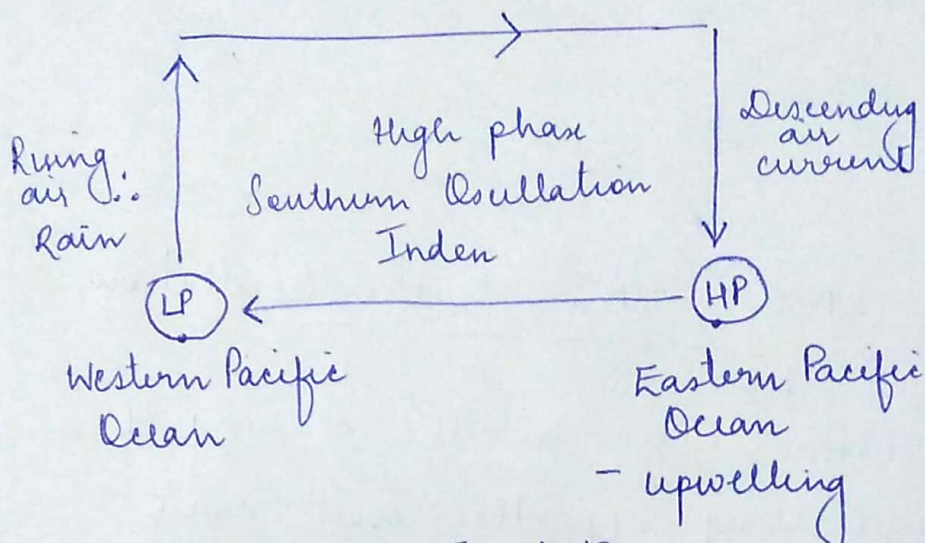 Rising
air ∴
Rain
High phase
Southern Oscillation
Index
Descending
air
current
LP
HP
Western Pacific
Ocean
Eastern Pacific
Ocean
- upwelling